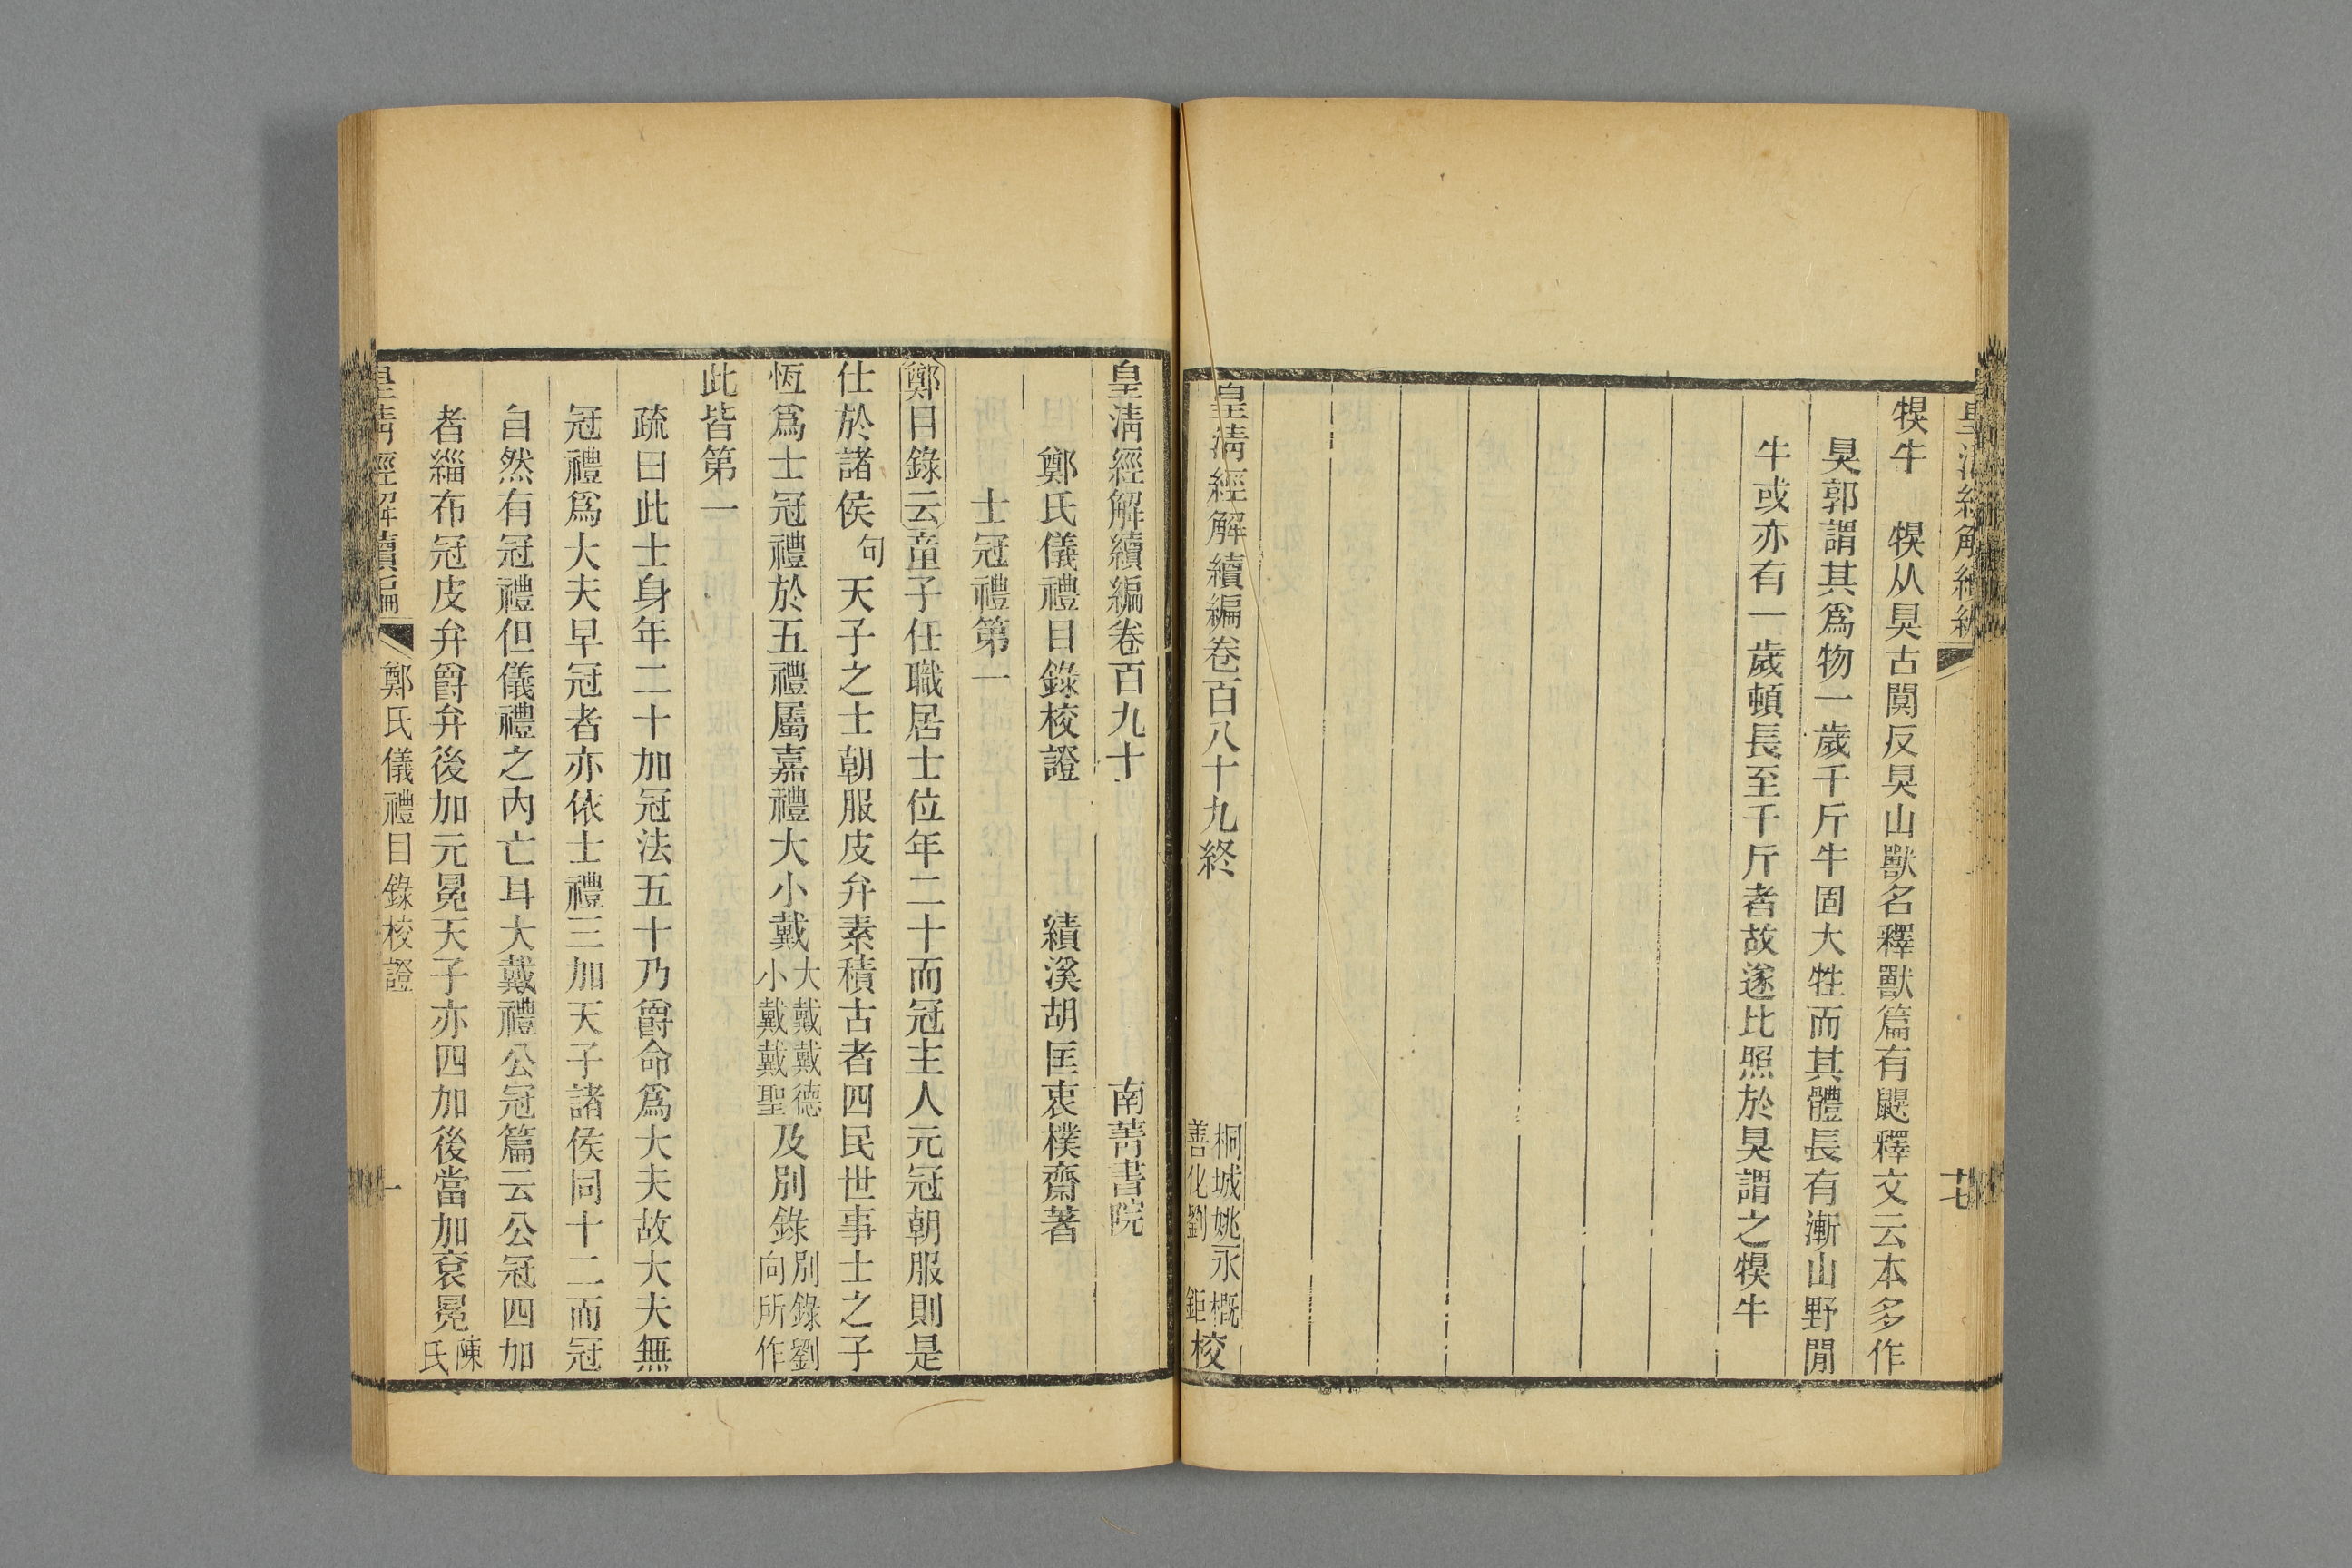 皇清經解續編
十七
犑牛　犑从狊古闃反狊山獸名釋獸篇有鼳釋文云本多作
狊郭謂其爲物一歲千斤牛固大牲而其體長有漸山野閒
牛或亦有一歲頓長至千斤者故遂比照於狊謂之犑牛
皇清經解續編卷百八十九終
桐城姚永概
善化劉　鉅
校
皇清經解續編卷百九十　南菁書院
鄭氏儀禮目錄校證　績溪胡匡衷樸齋著
士冠禮第一
鄭目錄云童子任職居士位年二十而冠主人元冠朝服則是
仕於諸侯句天子之士朝服皮弁素積古者四民世事士之子
恆爲士冠禮於五禮屬嘉禮大小戴大戴戴德小戴戴聖及別錄別錄劉向所作
此皆第一
疏曰此士身年二十加冠法五十乃爵命爲大夫故大夫無
冠禮爲大夫早冠者亦依士禮三加天子諸侯同十二而冠
自然有冠禮但儀禮之內亡耳大戴禮公冠篇云公冠四加
者緇布冠皮弁爵弁後加元冕天子亦四加後當加袞冕陳氏
皇清經解續編
鄭氏儀禮目錄校證
一